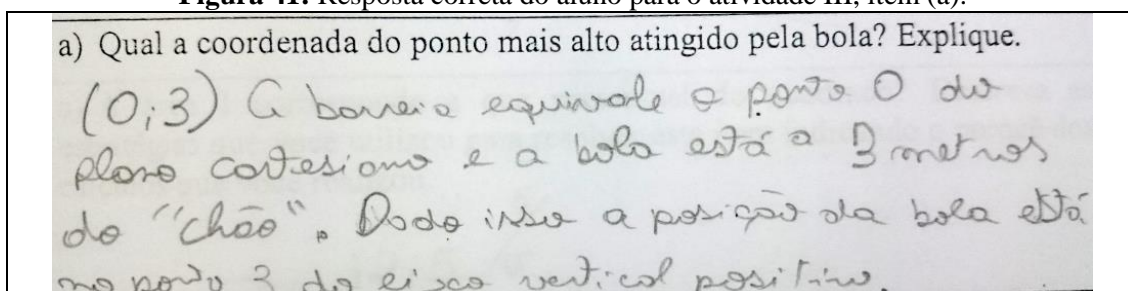 Figura 41: Resposta correta do aluno para o atividade III, item (a).
a) Qual a coordenada do ponto mais alto atingido pela bola? Explique.
(0;3) A barreira equivale o ponto O do
plano cartesiano e a bola está a 3 metros
do "chão". Dado isso a posição da bola está
no ponto 3 do eixo vertical positivo.